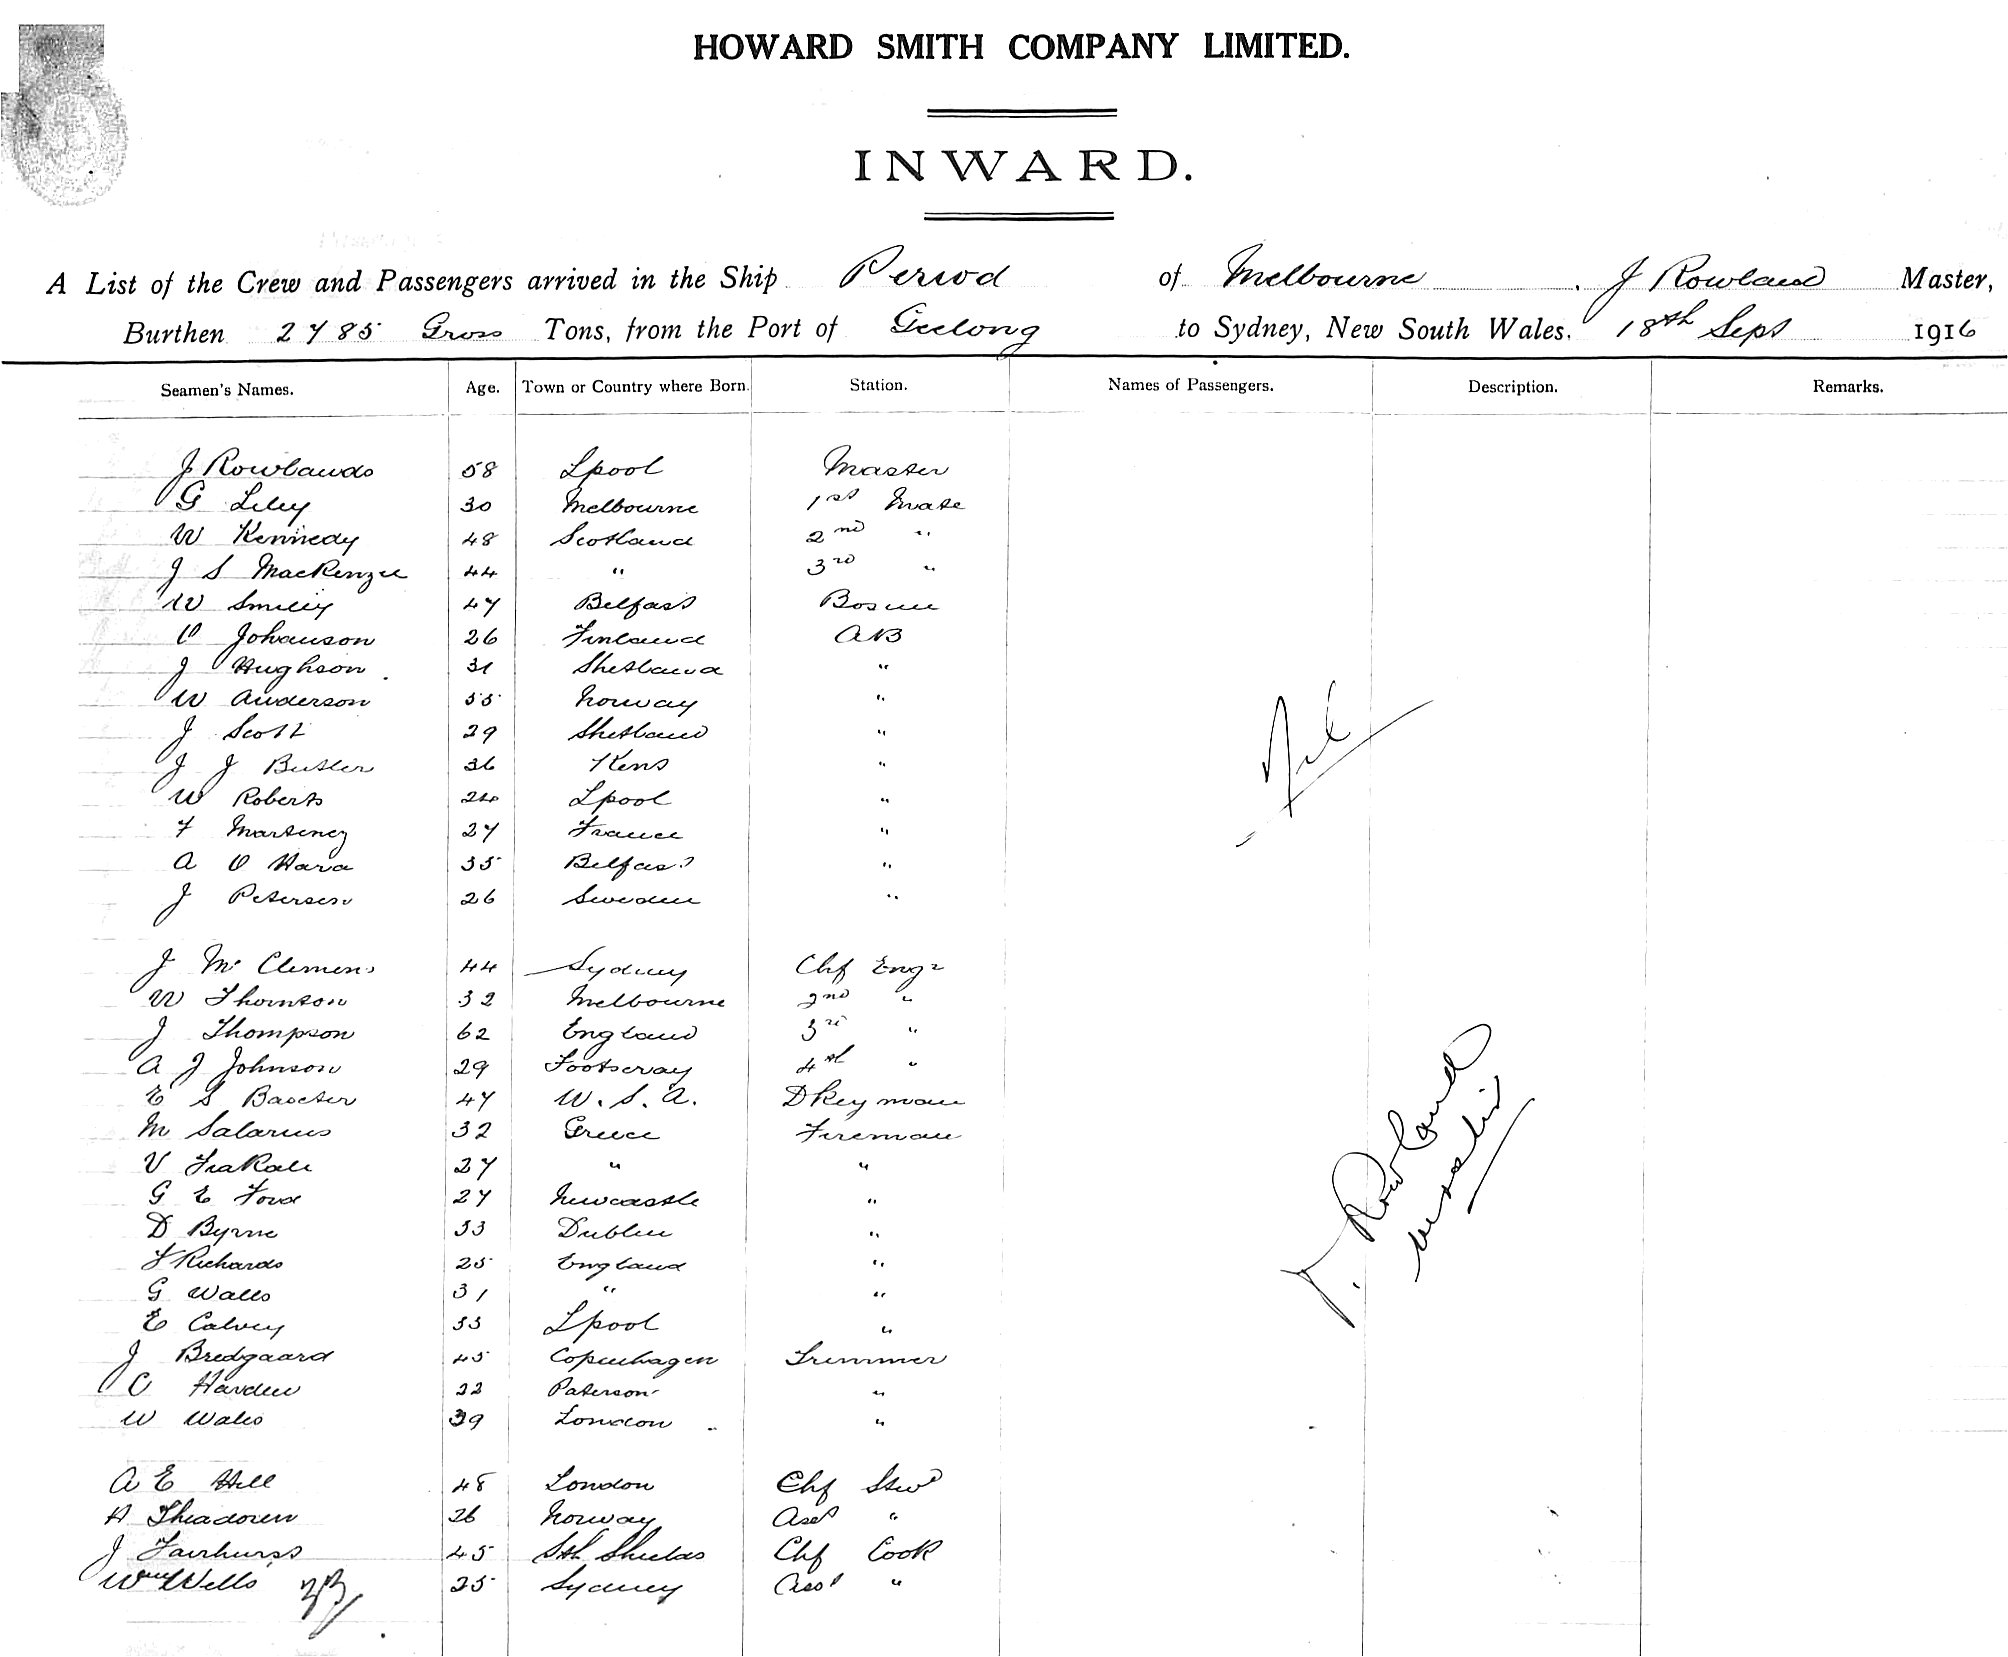 HOWARD SMITH COMPANY LIMITED.
INWARD.
A List of the Crew and Passengers arrived in the Ship Period of Melbourne, J Rowland Master,
Burthen 2785 Gross Tons, from the Port of Geelong to Sydney, New South Wales. 18th Sept 1916
Seamen's Names. Age. Town or Country where Born. Station. Names of Passengers. Description. Remarks.
J Rowlands 58 Lpool Master
G Liley 30 Melbourne 1st Mate
W Kennedy 48 Scotland 2nd "
J S MacKenzie 44 " 3rd "
W Smiley 47 Belfast Bosun
O Johanson 26 Finland AB
J Hughson 31 Shetland "
W Anderson 55 Norway "
J Scott 29 Shetland "
J J Butler 36 Kent "
W Roberts 24 Lpool "
F Martinez 27 France "
A O Hara 35 Belfast "
J Petersen 26 Sweden "
Nil
J Mc Clemens 44 Sydney Chf Engr
W Thornton 32 Melbourne 2nd "
J Thompson 62 England 3rd "
A J Johnson 29 Footscray 4th "
E S Baxter 47 U.S.A. Dkeyman
M Salarius 32 Greece Fireman
V 27 " "
G E Ford 27 Newcastle "
D Byrne 33 Dublin "
F Richards 25 England "
G Walls 31 " "
E Calvey 33 Lpool "
J Bredgaard 45 Copenhagen Trimmer
C Harden 22 Paterson "
W Wales 39 London "
J. Rowland
Master
A E Hill 48 London Chf Stwd
A Theadoren 26 Norway Asst "
J Fairhurst 45 Sth Shields Chf Cook
Wm Wells 25 Sydney Asst "